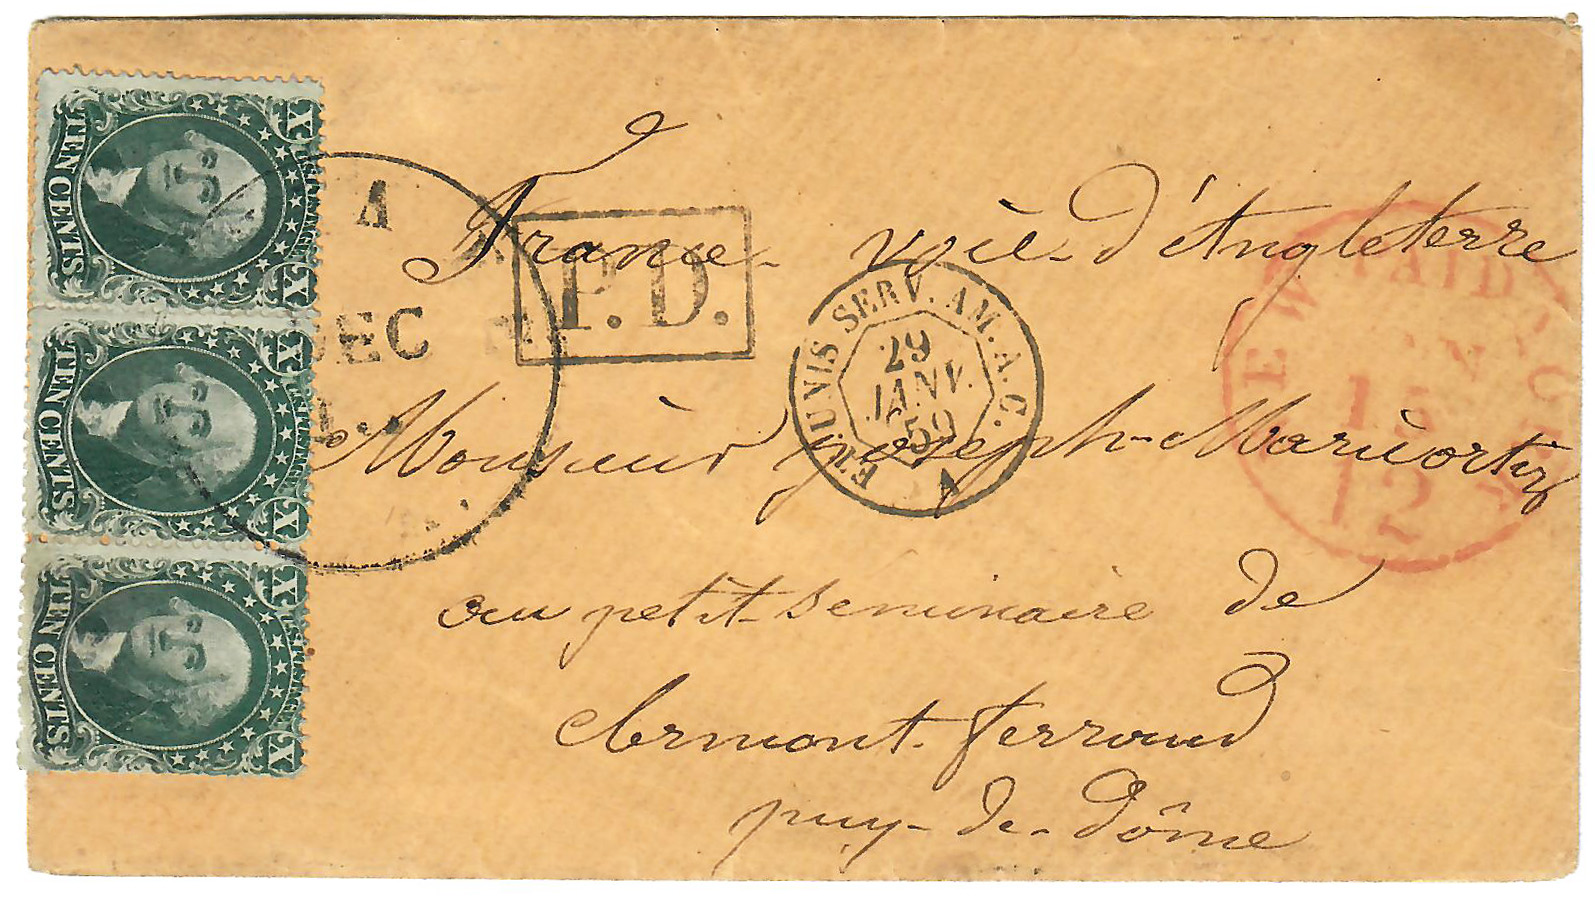 France voie d'Angleterre
Monsieur Joseph
au petit seminaire de
clermont ferrand
puy-de-Dôme
P.D.
ET. UNIS SERV. AM. A. C.
29
JANV.
59
A
DEC
NEW
PAID
15
12
X X
U.S. POSTAGE
TEN CENTS.
X X
U.S. POSTAGE
TEN CENTS.
X X
U.S. POSTAGE
TEN CENTS.